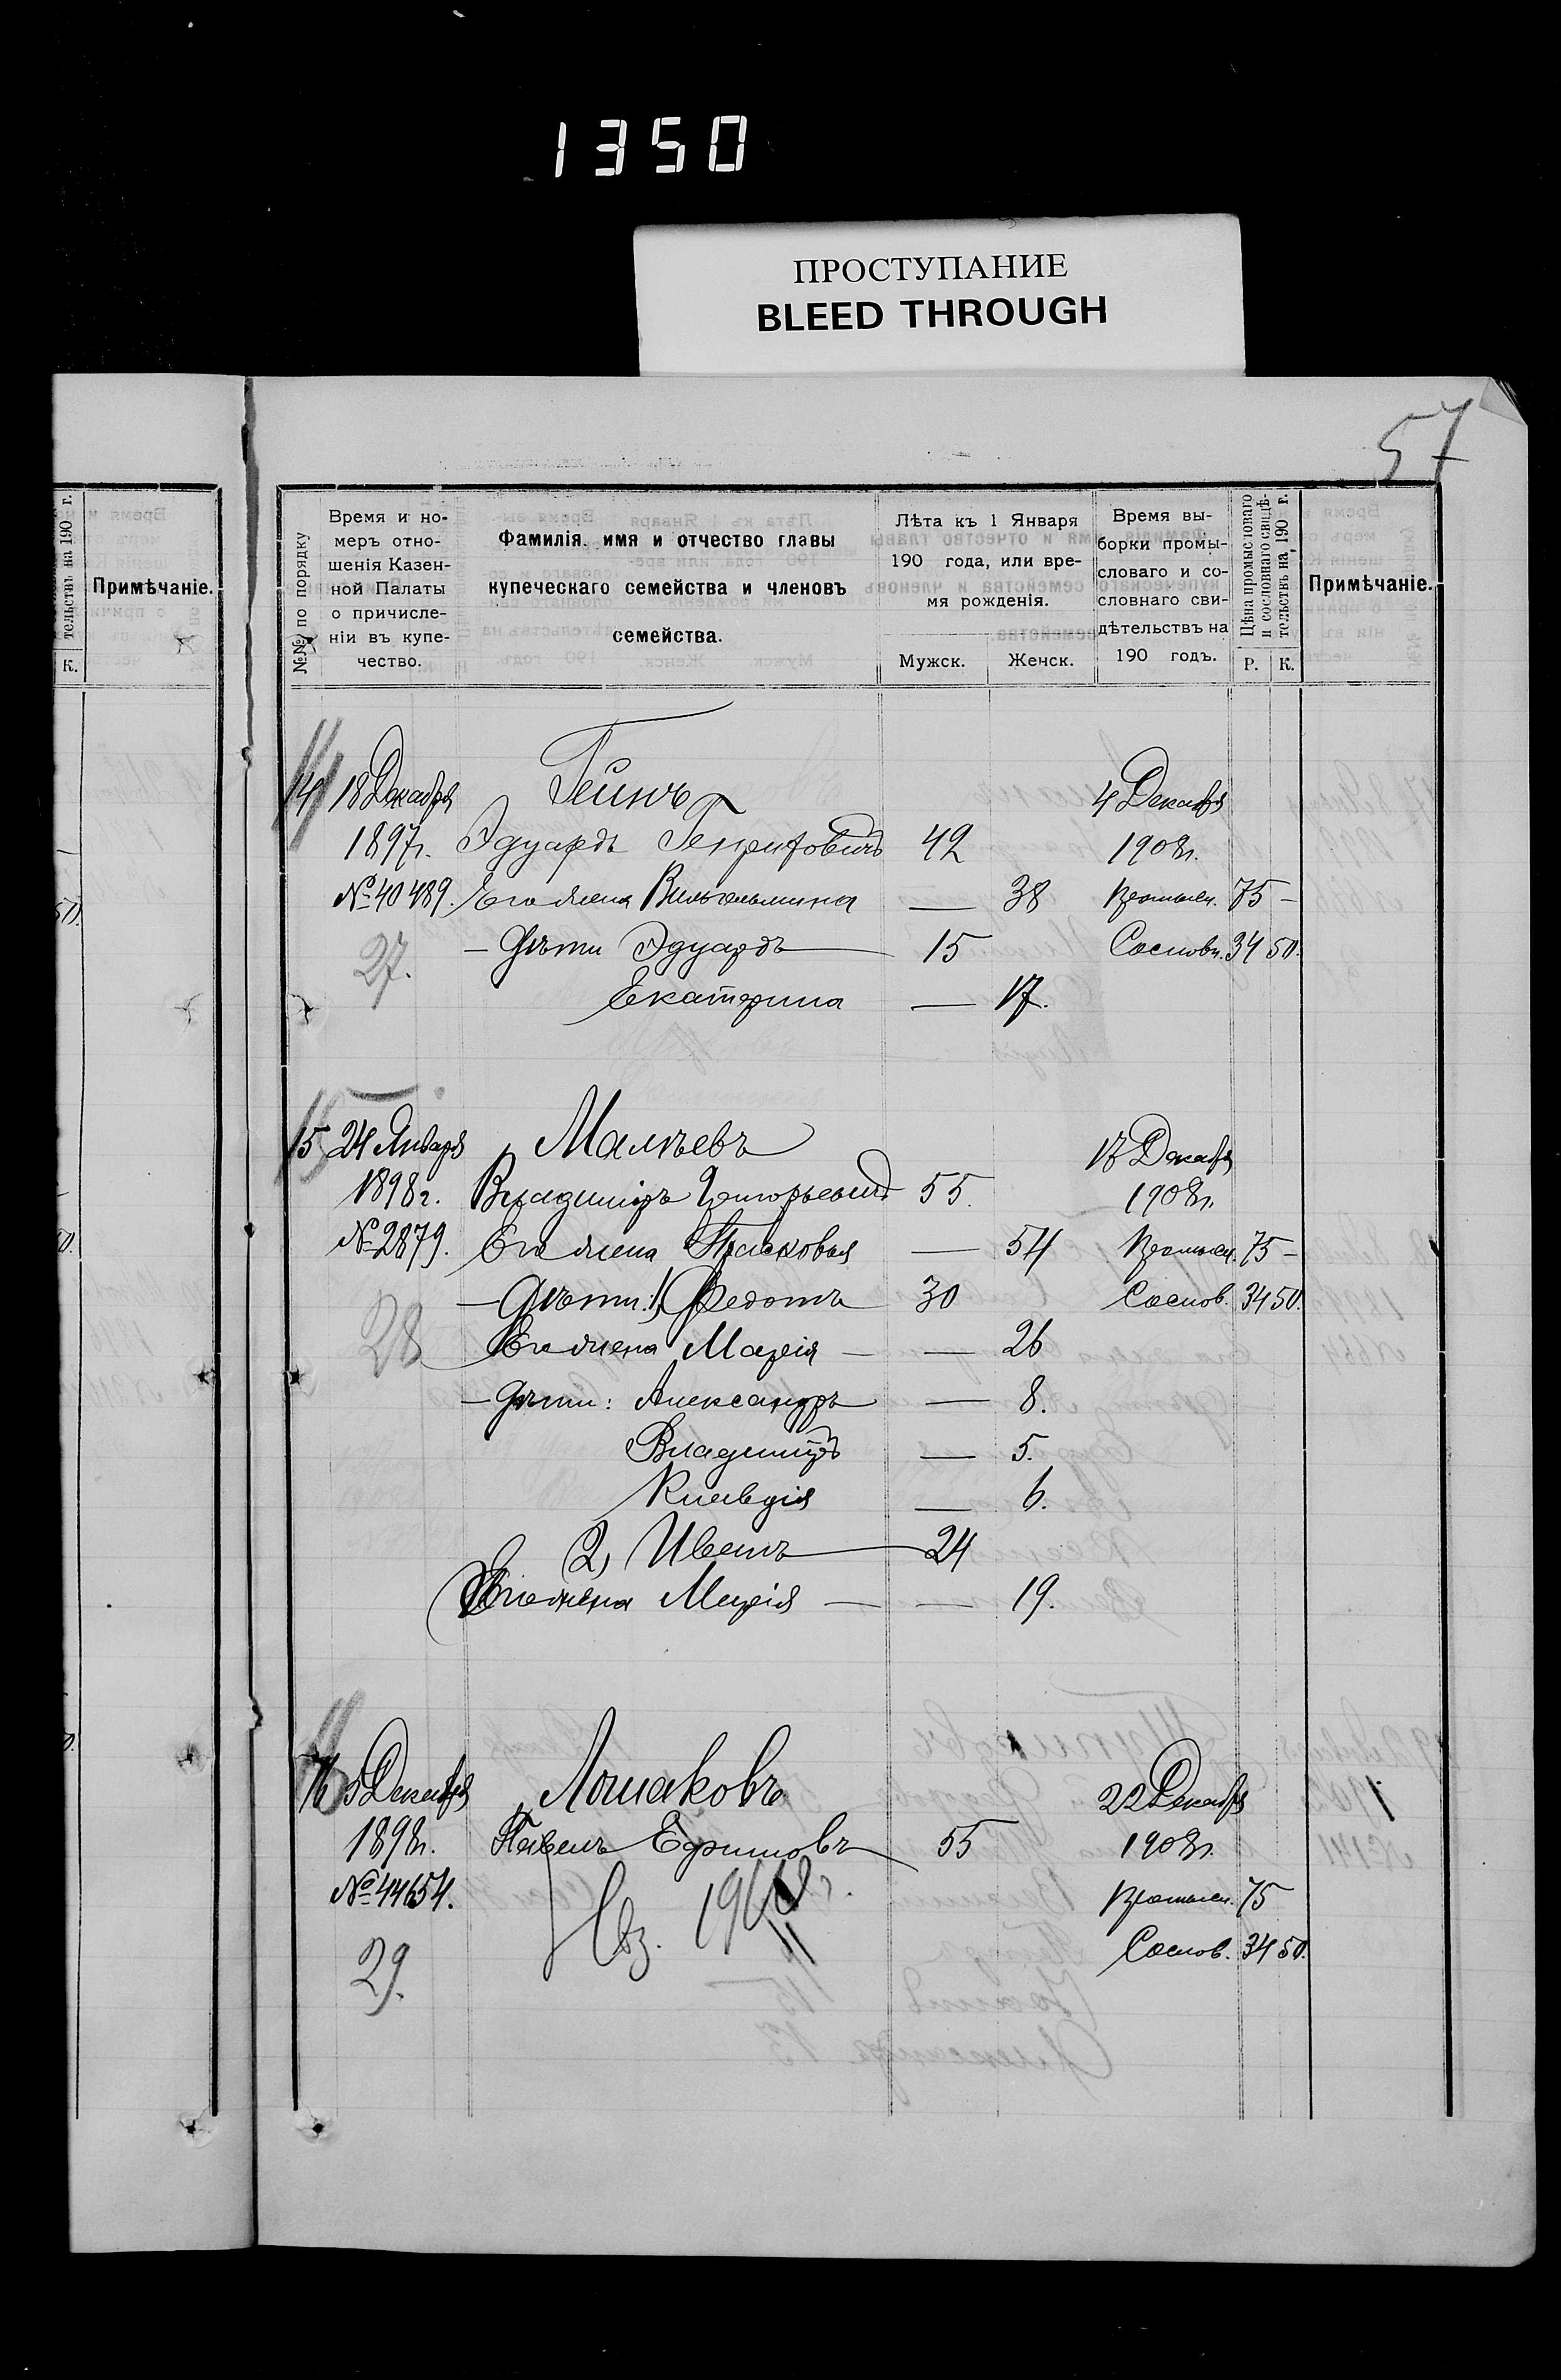 1350
ПРОСТУПАНИЕ
BLEED THROUGH
57
тельствъ на 190 г.
К.
Примѣчаніе.
№№ по порядку
Время и но-
меръ отно-
шенія Казен-
ной Палаты
о причисле-
ніи въ купе-
чество.
Фамилія, имя и отчество главы
купеческаго семейства и членовъ
семейства.
Лѣта къ 1 Января
190 года, или вре-
мя рожденія.
Мужск. Женск.
Время вы-
борки промы-
словаго и со-
словнаго сви-
дѣтельствъ на
190 годъ.
Цѣна промысловаго
и сословнаго свидѣ-
тельствъ на 190 г.
Р. К.
Примѣчаніе.
14 18 Декабря Гейнъ 4 Декабря
1897г. Эдуардъ Генриховичъ 42 1908г.
№ 40489. Его жена Вильгельмина — 38 Промысл. 75 —
27. — Дѣти Эдуардъ 15 Сословн. 34 50.
Екатерина — 17.
15 24 Января Малѣевъ 17 Декабря
1898г. Владиміръ Григорьевичъ 55. 1908г.
№ 2879. Его жена Прасковья — 54 Промысл. 75 —
28 — Дѣти: 1) Федотъ 30 Сослов. 34 50.
Его жена Марія — — 26
— Дѣти: Александръ — 8.
Владиміръ — 5.
Клавдія — 6.
2) Иванъ 24
Его жена Марія — — 19.
16 5 Декабря Лошаковъ 22 Декабря
1898г. Павелъ Ефимовъ 55 1908г.
№ 44654. Промысл. 75
29. Сослов. 34 50.